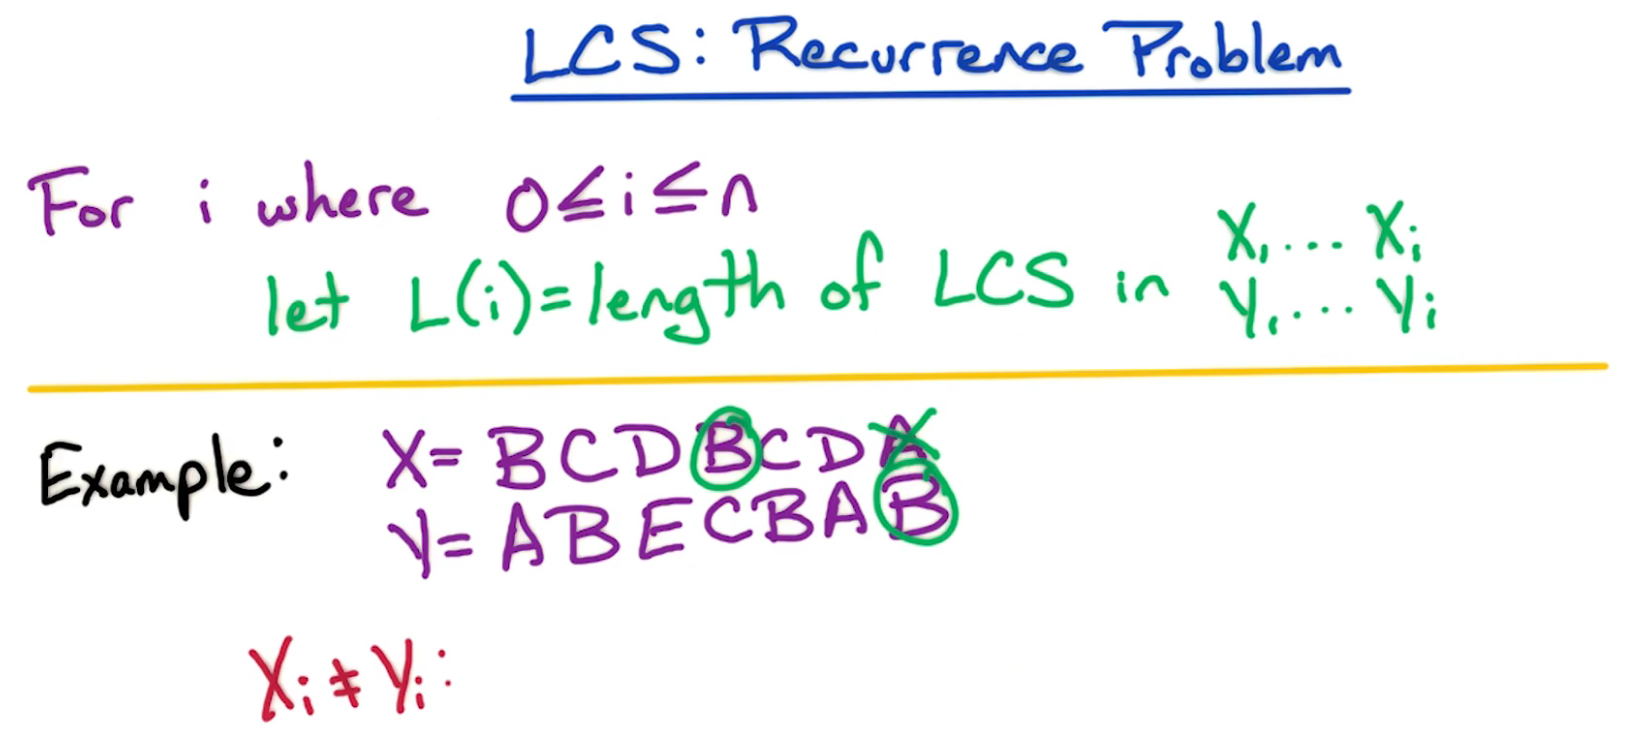 LCS: Recurrence Problem
For i where 0≤i≤n
let L(i)=length of LCS in X₁... Xᵢ
Y₁... Yᵢ
Example: X= BCDBCDA
Y= ABECBAB
Xᵢ≠Yᵢ: